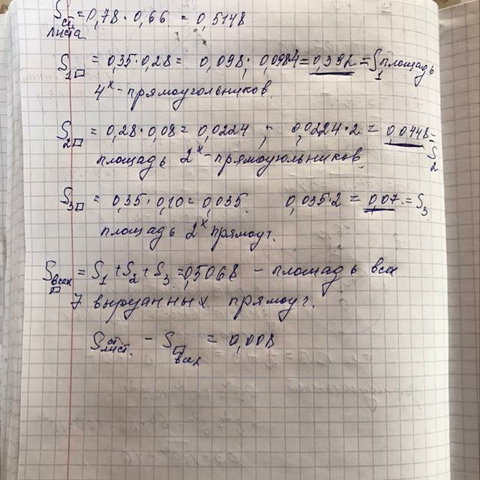 Sст листа = 0,78 · 0,66 = 0,5148
S1□ = 0,35·0,28 = 0,098; 0,098·4 = 0,392 = S1 площадь
4х-прямоугольников.
S2□ = 0,28·0,08 = 0,0224; 0,0224·2 = 0,0448 = S2
площадь 2х-прямоугольников.
S3□ = 0,35·0,10 = 0,035. 0,035·2 = 0,07 = S3
площадь 2х прямоуг.
Sвсех □ = S1 + S2 + S3 = 0,5068 - площадь всех
вырезанных прямоуг.
Sст лист. - S□всех = 0,008